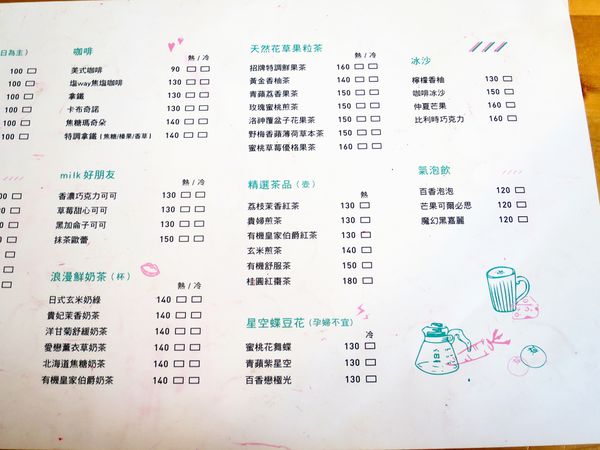 日為主)
100
100
100
100
100
100
咖啡
熱 / 冷
美式咖啡 90
塩way焦塩咖啡 130
拿鐵 130
卡布奇諾 130
焦糖瑪奇朵 140
特調拿鐵 (焦糖/榛果/香草) 140
milk 好朋友
香濃巧克力可可 130
草莓甜心可可 130
黑加侖子可可 130
抹茶歐蕾 150
浪漫鮮奶茶 (杯)
熱 / 冷
日式玄米奶綠 140
貴妃茉香奶茶 140
洋甘菊舒緩奶茶 140
愛戀薰衣草奶茶 140
北海道焦糖奶茶 140
有機皇家伯爵奶茶 140
天然花草果粒茶
熱 / 冷
招牌特調鮮果茶 160
黃金香柚茶 140
青蘋荔香果茶 150
玫瑰蜜桃煎茶 150
洛神覆盆子花果茶 150
野梅香蘋薄荷草本茶 150
蜜桃草莓優格果茶 160
精選茶品 (壺)
熱
荔枝茉香紅茶 130
貴婦煎茶 130
有機皇家伯爵紅茶 130
玄米煎茶 150
有機舒服茶 150
桂圓紅棗茶 180
星空蝶豆花 (孕婦不宜)
冷
蜜桃花舞蝶 130
青蘋紫星空 130
百香戀極光 130
冰沙
檸檬香柚 130
咖啡冰沙 150
仲夏芒果 160
比利時巧克力 160
氣泡飲
百香泡泡 120
芒果可爾必思 120
魔幻黑嘉麗 120